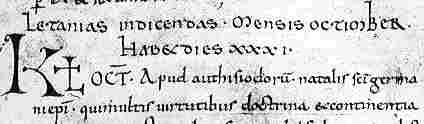 Letanias indicendas. Mensis october.
Habet dies xxxi.
Kł OCT̄. Apud authisiodorū. natalis sc̄i germa
ni ep̄i. qui multis virtutibus doctrina & continentia